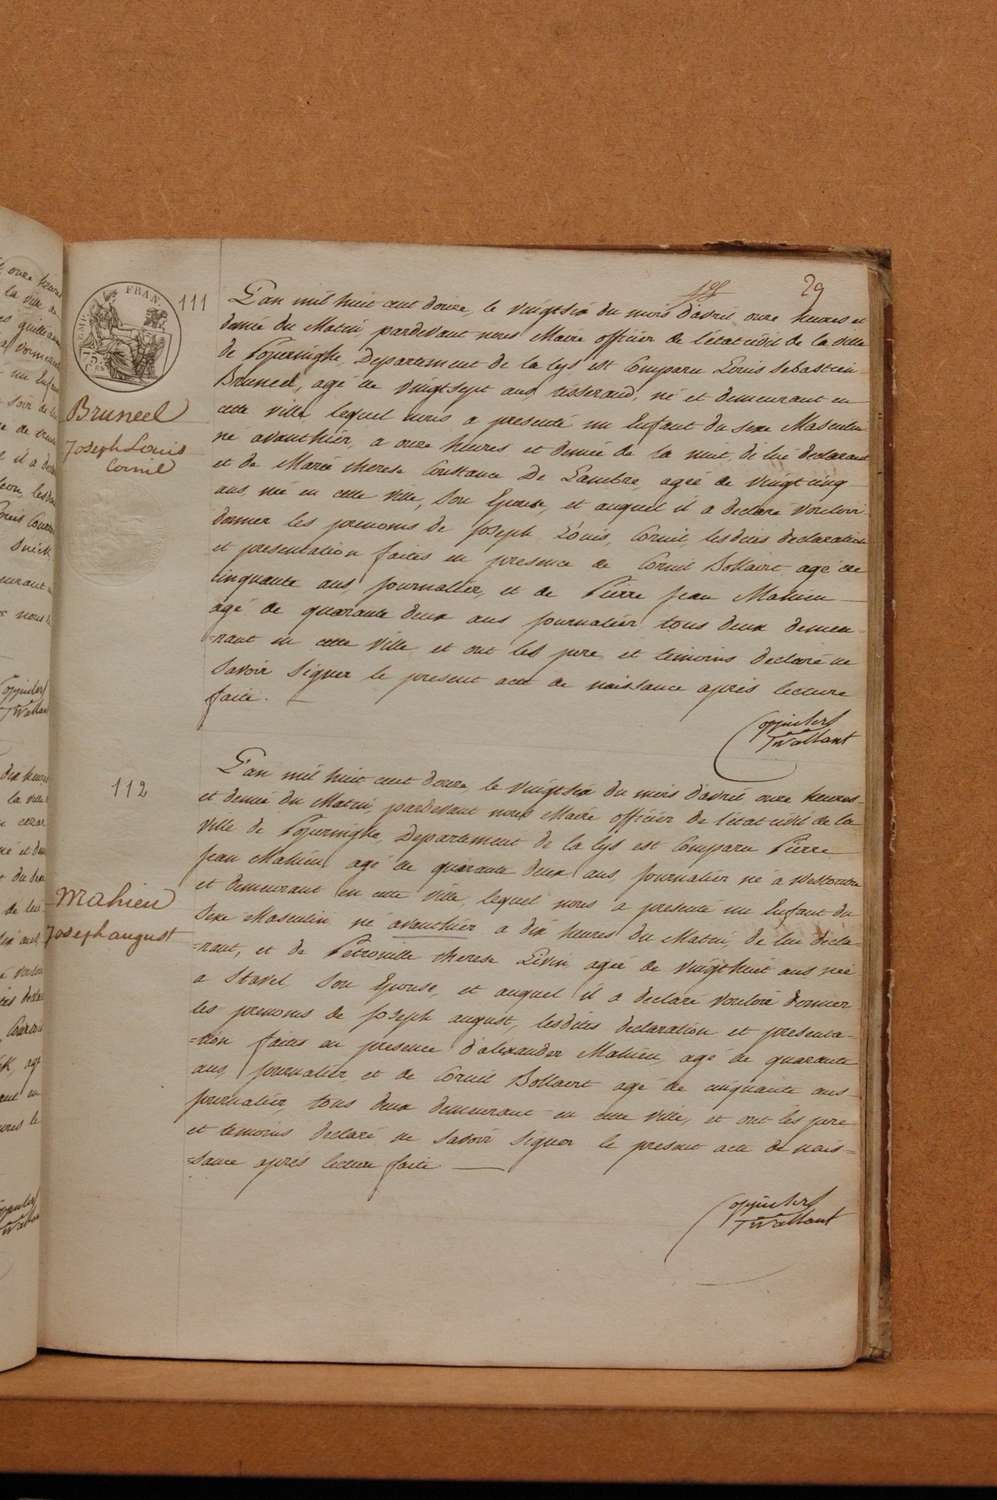 29
111
Bruneel
Joseph Louis
Cornil
L'an mil huit cent douze, le vingtsix du mois d'avril onze heures et
demie du Matin pardevant nous Maire officier de l'état civil de la ville
de Poperinghe, Departement de la Lys est Comparu Louis Sebastien
Bruneel, agé de vingtsept ans, tisserand, né et demeurant en
cette ville, lequel nous a presenté un Enfant du sexe Masculin
né avanthier a onze heures et demie de la nuit, de lui declarant
et de Marie therese Constance De Lambre, agée de vingt cinq
ans, née en cette ville, son Epouse, et auquel il a declaré vouloir
donner les prenoms de Joseph, Louis, Cornil, lesdites declaration
et presentation faites en presence de Cornil Bollaert agé de
cinquante ans, journalier, et de Pierre Jean Mahieu
agé de quarante deux ans journalier tous deux demeu-
=rant en cette ville et ont les pere et temoins declaré ne
savoir signer le present acte de naissance après lecture
faite.
112
Mahieu
Joseph august
L'an mil huit cent douze, le vingtsix du mois d'avril onze heures
et demie du Matin, pardevant nous Maire officier de l'état civil de la
ville de Poperinghe, Departement de la Lys est Comparu Pierre
Jean Mahieu agé de quarante deux ans journalier né a
et demeurant en cette ville, lequel nous a presenté un Enfant du
sexe Masculin né avanthier a dix heures du Matin, de lui decla-
=rant, et de Petronille therese Livin agée de vingthuit ans née
a Stavel son Epouse, et auquel il a declaré vouloir donner
les prenoms de Joseph august, lesdites declaration et presenta-
=tion faites en presence d'alexander Mahieu, agé de quarante
ans, journalier, et de Cornil Bollaert agé de cinquante ans
journalier, tous deux demeurant en cette ville, et ont les pere
et temoins declaré ne savoir signer le present acte de nais=
=sance après lecture faite